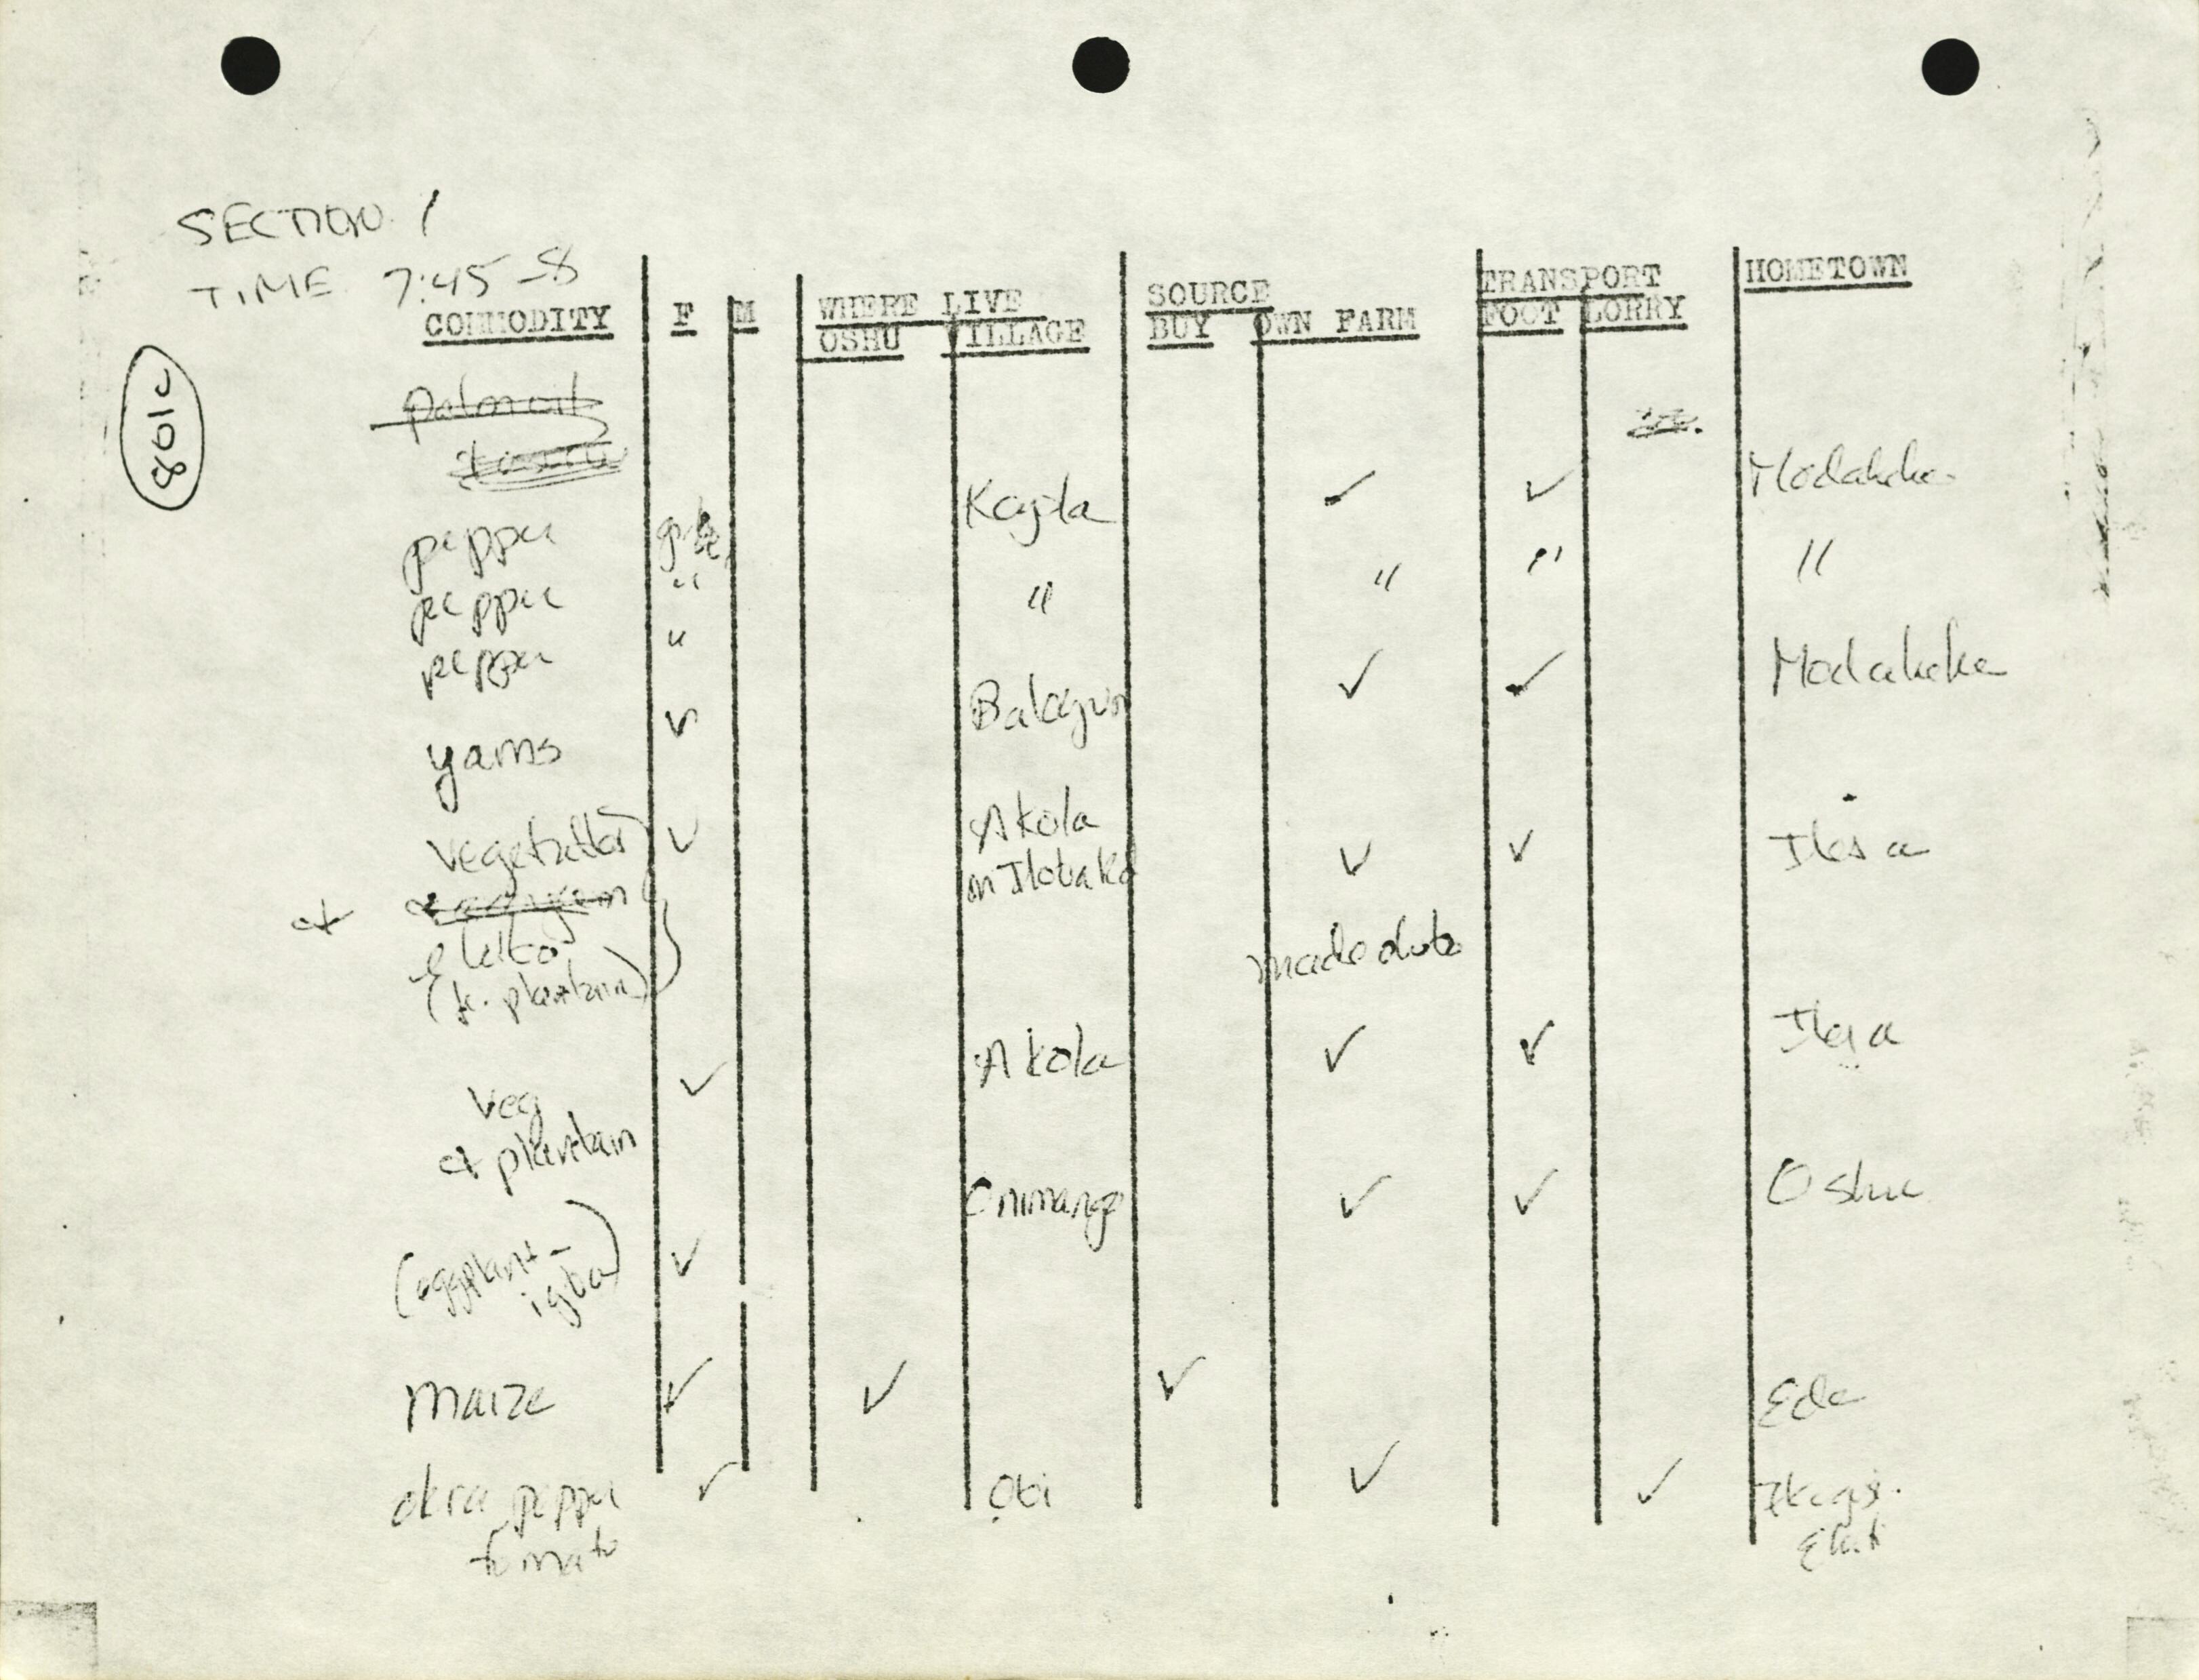 SECTION 1
TIME 7:45-8
COMMODITY F M WHERE LIVE SOURCE TRANSPORT HOMETOWN
OSHU VILLAGE BUY OWN FARM FOOT LORRY
801c
palm oil
✓ ✓ Modakeke
pepper
pepper " " " " "
pepper "
Balogun ✓ ✓ Modakeke
yams ✓
Akola
✓ ✓ ✓ Ilesa
+
made dubo
(fr. plantain)
Akola ✓ ✓ Ilesa
Veg ✓
+ plantain
Onimango ✓ ✓ Oshu
(eggplant - ✓
igba)
maize ✓ ✓ ✓ Ede
okra pepper ✓ Obi ✓ ✓
tomato Ekiti